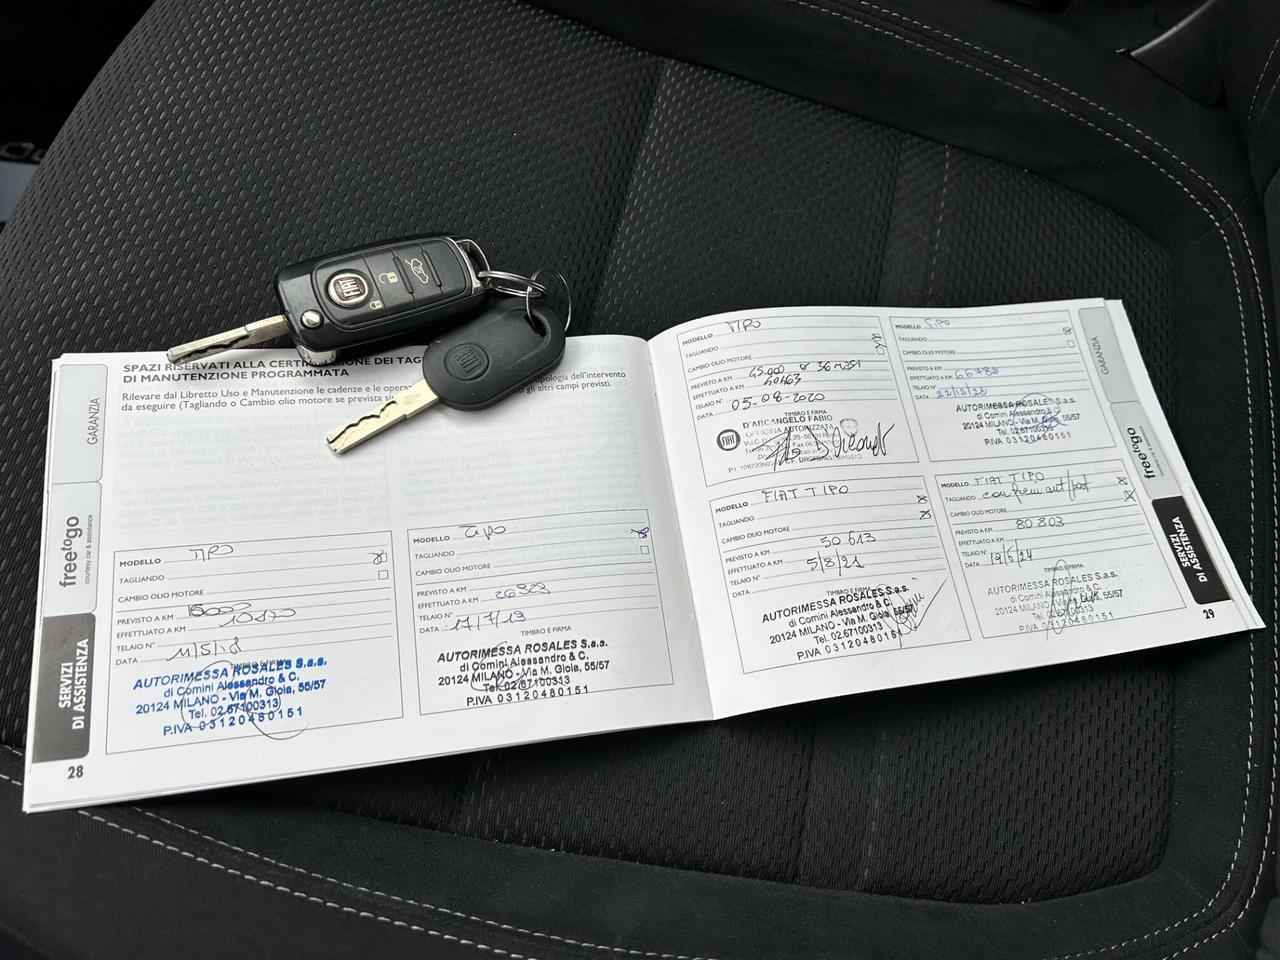 FIAT
FIAT
SPAZI RISERVATI ALLA
DI MANUTENZIONE PROGRAMMATA
Rilevare dal Libretto Uso e Manutenzione le cadenze e le
tipologia dell'intervento
da eseguire (Tagliando o Cambio olio motore se prevista
gli altri campi previsti.
GARANZIA
freetogo
courtesy car & assistance
SERVIZI
DI ASSISTENZA
28
MODELLO TIPO
TAGLIANDO
CAMBIO OLIO MOTORE
PREVISTO A KM
EFFETTUATO A KM 10170
TELAIO N°
DATA 11/5/18
TIMBRO E FIRMA
AUTORIMESSA ROSALES S.a.s.
di Comini Alessandro & C.
20124 MILANO - Via M. Gioia, 55/57
Tel. 02.67100313
P.IVA 03120480151
MODELLO Tipo
TAGLIANDO
CAMBIO OLIO MOTORE
PREVISTO A KM
EFFETTUATO A KM
TELAIO N°
DATA 17/7/19
TIMBRO E FIRMA
AUTORIMESSA ROSALES S.a.s.
di Comini Alessandro & C.
20124 MILANO - Via M. Gioia, 55/57
Tel. 02.67100313
P.IVA 03120480151
MODELLO TIPO
TAGLIANDO
CAMBIO OLIO MOTORE
PREVISTO A KM 45.000 36 mesi
EFFETTUATO A KM 40463
TELAIO N°
DATA 05-08-2020
TIMBRO E FIRMA
FIAT
D'ARCANGELO FABIO
OFFICINA AUTORIZZATA
MODELLO TIPO
TAGLIANDO
CAMBIO OLIO MOTORE
PREVISTO A KM
EFFETTUATO A KM 66782
TELAIO N°
DATA 22/12/22
AUTORIMESSA ROSALES S.a.s.
di Comini Alessandro & C.
20124 MILANO - Via M. Gioia, 55/57
Tel. 02.67100313
P.IVA 03120480151
MODELLO FIAT TIPO
TAGLIANDO
CAMBIO OLIO MOTORE
PREVISTO A KM
EFFETTUATO A KM 50 613
TELAIO N°
DATA 5/8/21
TIMBRO E FIRMA
AUTORIMESSA ROSALES S.a.s.
di Comini Alessandro & C.
20124 MILANO - Via M. Gioia, 55/57
Tel. 02.67100313
P.IVA 03120480151
MODELLO FIAT TIPO
TAGLIANDO con freni ant/post
CAMBIO OLIO MOTORE
PREVISTO A KM
EFFETTUATO A KM 80 803
TELAIO N°
DATA 19/6/24
TIMBRO E FIRMA
AUTORIMESSA ROSALES S.a.s.
di Comini Alessandro & C.
20124 MILANO - Via M. Gioia, 55/57
Tel. 02.67100313
P.IVA 03120480151
GARANZIA
freetogo
courtesy car & assistance
SERVIZI
DI ASSISTENZA
29